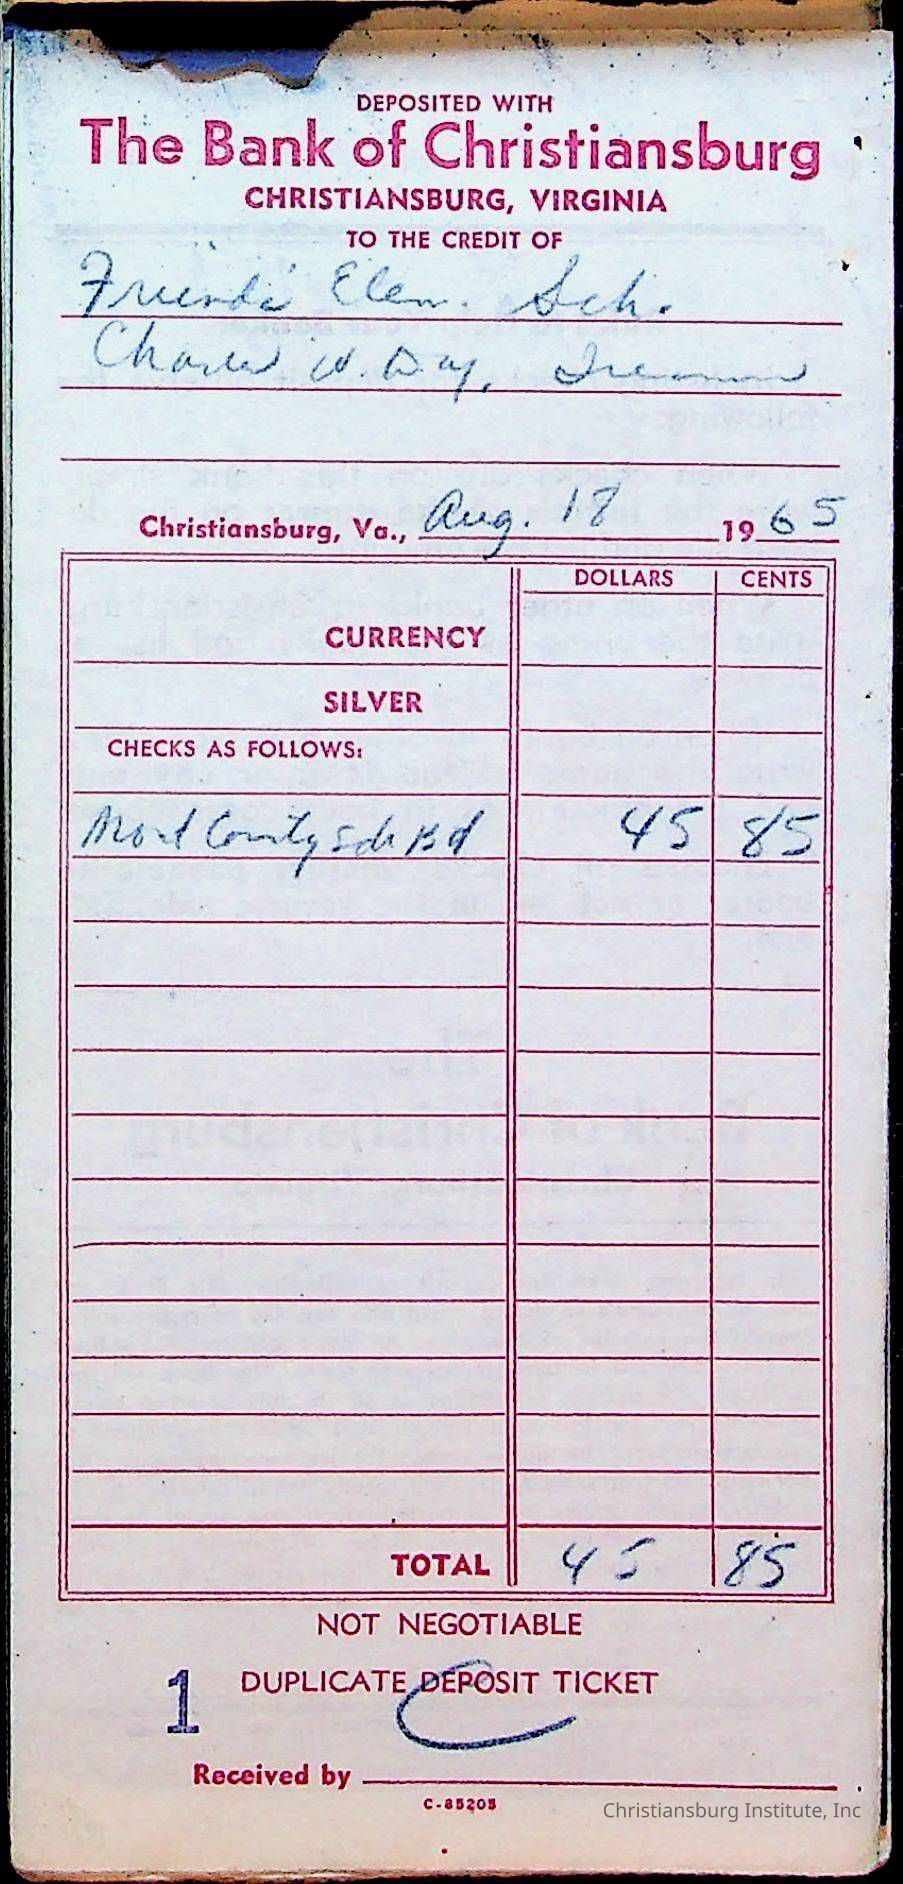 DEPOSITED WITH
The Bank of Christiansburg
CHRISTIANSBURG, VIRGINIA
TO THE CREDIT OF
Friends Elem. Sch.
Charles W. Day, Treasurer
Christiansburg, Va., Aug. 18 1965
DOLLARS CENTS
CURRENCY
SILVER
CHECKS AS FOLLOWS:
Mont County Sch Bd 45 85
TOTAL 45 85
NOT NEGOTIABLE
1 DUPLICATE DEPOSIT TICKET
Received by
C-85205
Christiansburg Institute, Inc